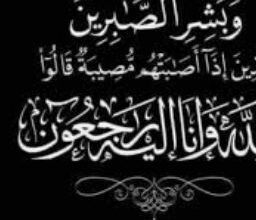 وَبَشِّرِ الصَّابِرِينَ
إِذَا أَصَابَتْهُم مُّصِيبَةٌ قَالُوا
وَإِنَّا إِلَيْهِ رَاجِعُونَ